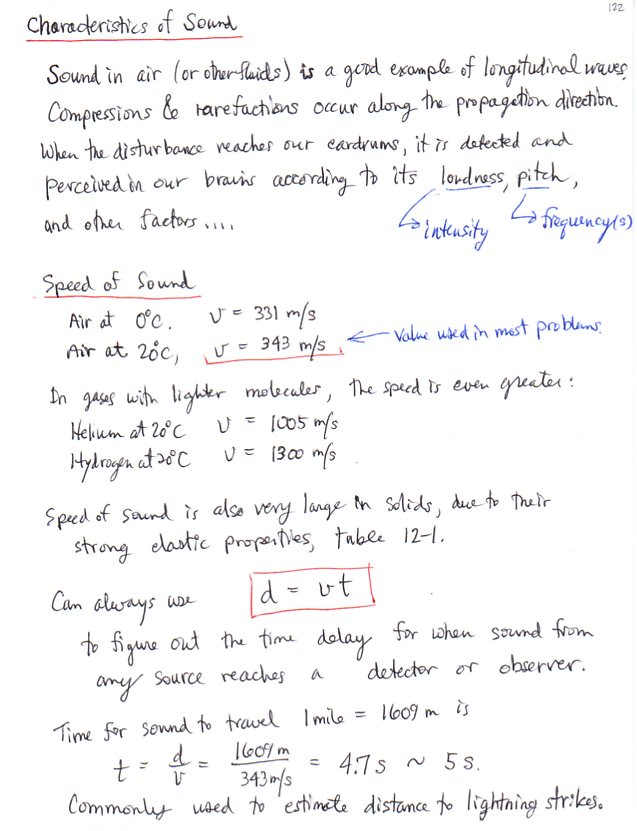 122
Characteristics of Sound
Sound in air (or other fluids) is a good example of longitudinal waves.
Compressions & rarefactions occur along the propagation direction.
When the disturbance reaches our eardrums, it is detected and
perceived in our brains according to its loudness, pitch,
and other factors.... → intensity → frequency(s)
Speed of Sound
Air at 0°C. v = 331 m/s
Air at 20°C, v = 343 m/s ← Value used in most problems.
In gases with lighter molecules, the speed is even greater:
Helium at 20°C v = 1005 m/s
Hydrogen at 20°C v = 1300 m/s
Speed of sound is also very large in solids, due to their
strong elastic properties, table 12-1.
Can always use d = vt
to figure out the time delay for when sound from
any source reaches a detector or observer.
Time for sound to travel 1 mile = 1609 m is
t = d/v = 1609 m / 343 m/s = 4.7 s ~ 5 s.
Commonly used to estimate distance to lightning strikes.